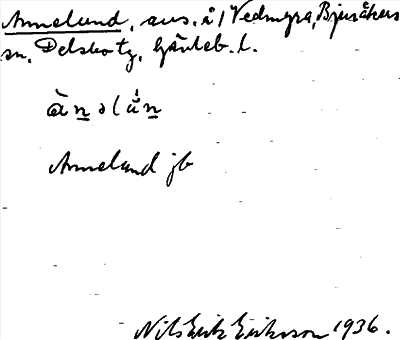 Annelund, avs. å 1 Vedmyra, Bjuråkers
sn, Delsbo tg, Gävleb. l.
ànəlún
Annelund jb
Nils Erik Eriksson 1936.